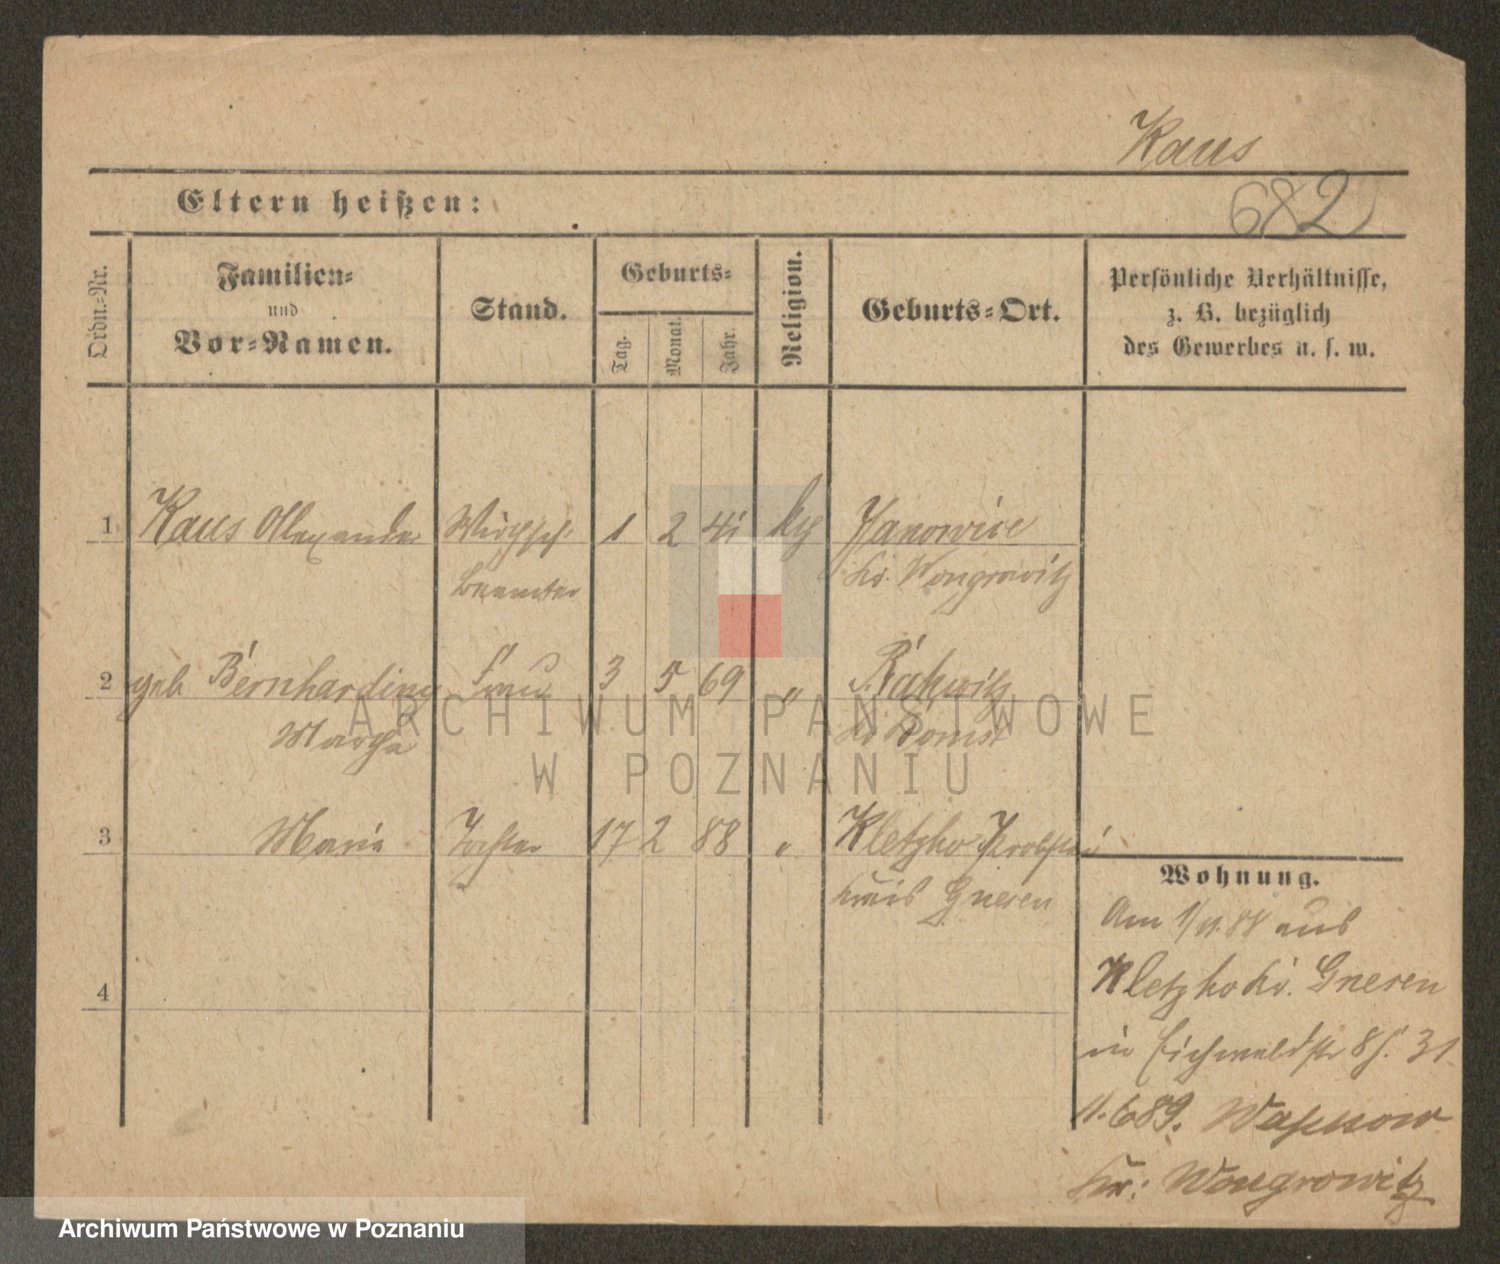 Kaus
682
Eltern heißen:
Ordn.-Nr.
Familien-
und
Vor-Namen.
Stand.
Geburts-
Tag.
Monat.
Jahr.
Religion.
Geburts-Ort.
Persönliche Verhältnisse,
z. B. bezüglich
des Gewerbes u. s. w.
1 Kaus Alexander Wirthsch. 1 2 41 Janowice
Beamter Kr. Wongrowitz
2 geb Bernhardine Frau 3 5 69 " Rakwitz
Kr Bomst
3 Marie Tochter 17 2 88 " Kletzko Probstei
Kreis Gnesen
Wohnung.
Am 1/11.88 aus
Kletzko Kr. Gnesen
4
in Eichwaldstr 8 31
11.6 89. Wapnow
Kr: Wongrowitz
ARCHIWUM PAŃSTWOWE
W POZNANIU
Archiwum Państwowe w Poznaniu